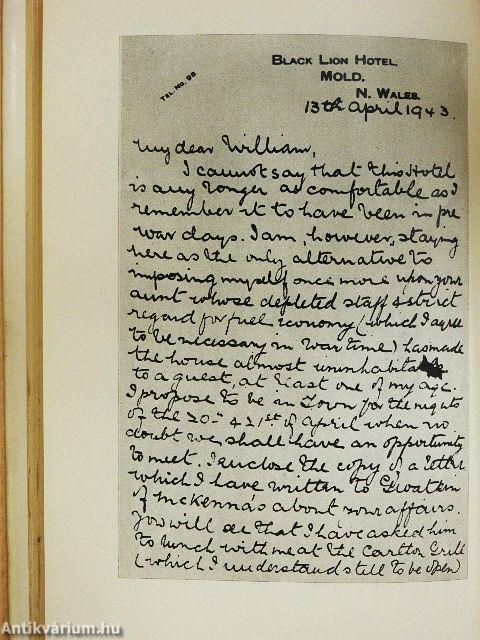 BLACK LION HOTEL,
MOLD.
N. WALES.
TEL. NO. 98
13th April 1943.
My dear William,
I cannot say that this Hotel
is any longer as comfortable as I
remember it to have been in pre
war days. I am, however, staying
here as the only alternative to
imposing myself once more upon your
aunt whose depleted staff & strict
regard for fuel economy (which I agree
to be necessary in war time) has made
the house almost uninhabitable
to a guest, at least one of my age.
I propose to be in Town for the nights
of the 20th & 21st of April when no
doubt we shall have an opportunity
to meet. I enclose the copy of a letter
which I have written to Gwatkin
of McKenna's about your affairs.
You will see that I have asked him
to lunch with me at the Carlton Grill
(which I understand still to be open)
Antikvárium.hu